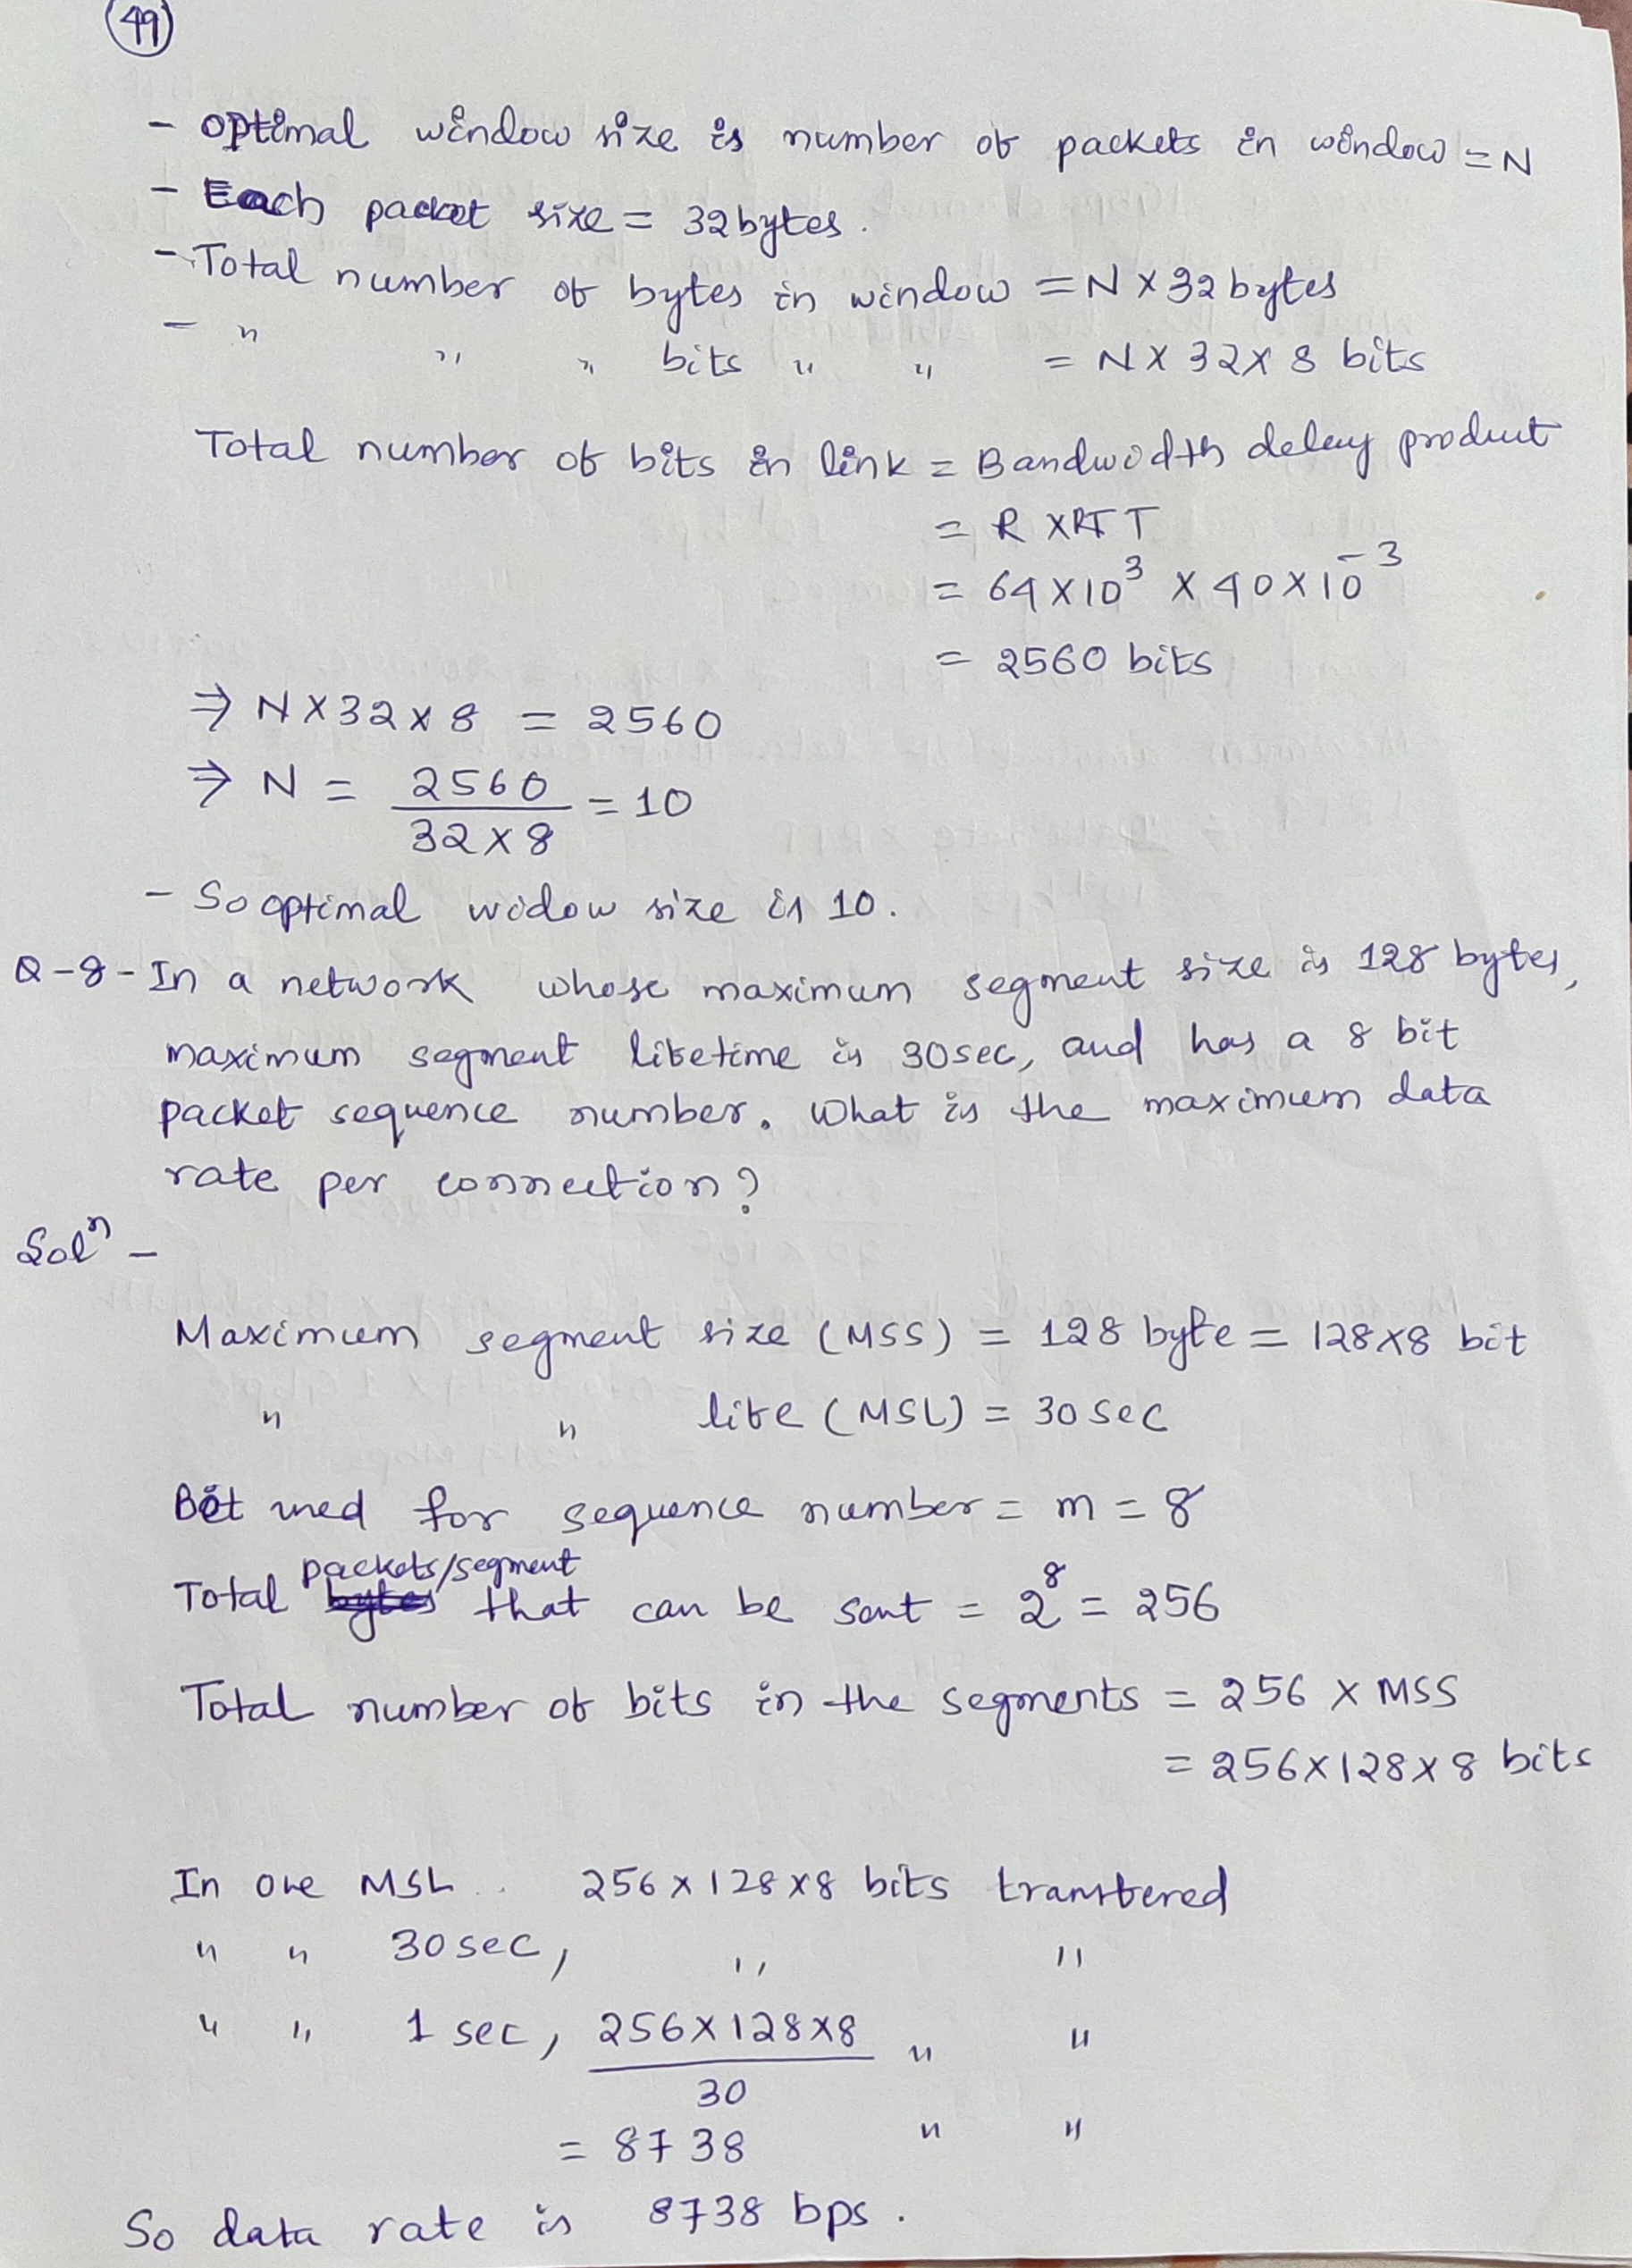 49
- Optimal window size is number of packets in window = N
- Each packet size = 32 bytes.
- Total number of bytes in window = N X 32 bytes
- " " " bits " " = N X 32 X 8 bits
Total number of bits in link = Bandwidth delay product
= R X RTT
= 64 X 10³ X 40 X 10⁻³
= 2560 bits
⇒ N X 32 X 8 = 2560
⇒ N = 2560 / 32 X 8 = 10
- So optimal widow size is 10.
Q-8 - In a network whose maximum segment size is 128 bytes,
maximum segment lifetime is 30 sec, and has a 8 bit
packet sequence number. What is the maximum data
rate per connection?
Solⁿ -
Maximum segment size (MSS) = 128 byte = 128 X 8 bit
" " life (MSL) = 30 sec
Bit used for sequence number = m = 8
Total packets/segment that can be sent = 2⁸ = 256
Total number of bits in the segments = 256 X MSS
= 256 X 128 X 8 bits
In one MSL .. 256 X 128 X 8 bits transfered
" " 30 sec, " "
" " 1 sec, 256 X 128 X 8 / 30 " "
= 8738 " "
So data rate is 8738 bps.